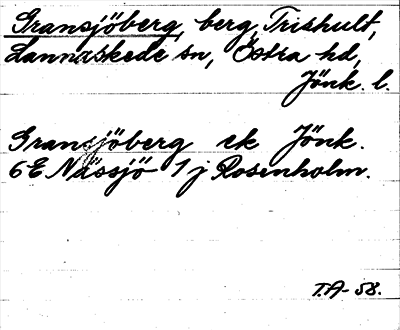 Gransjöberg, berg, Trishult,
Lannaskede sn, Östra hd,
Jönk. l.
Gransjöberg ek Jönk.
6E Nässjö 1 j Rosenholm.
T.A- 58.